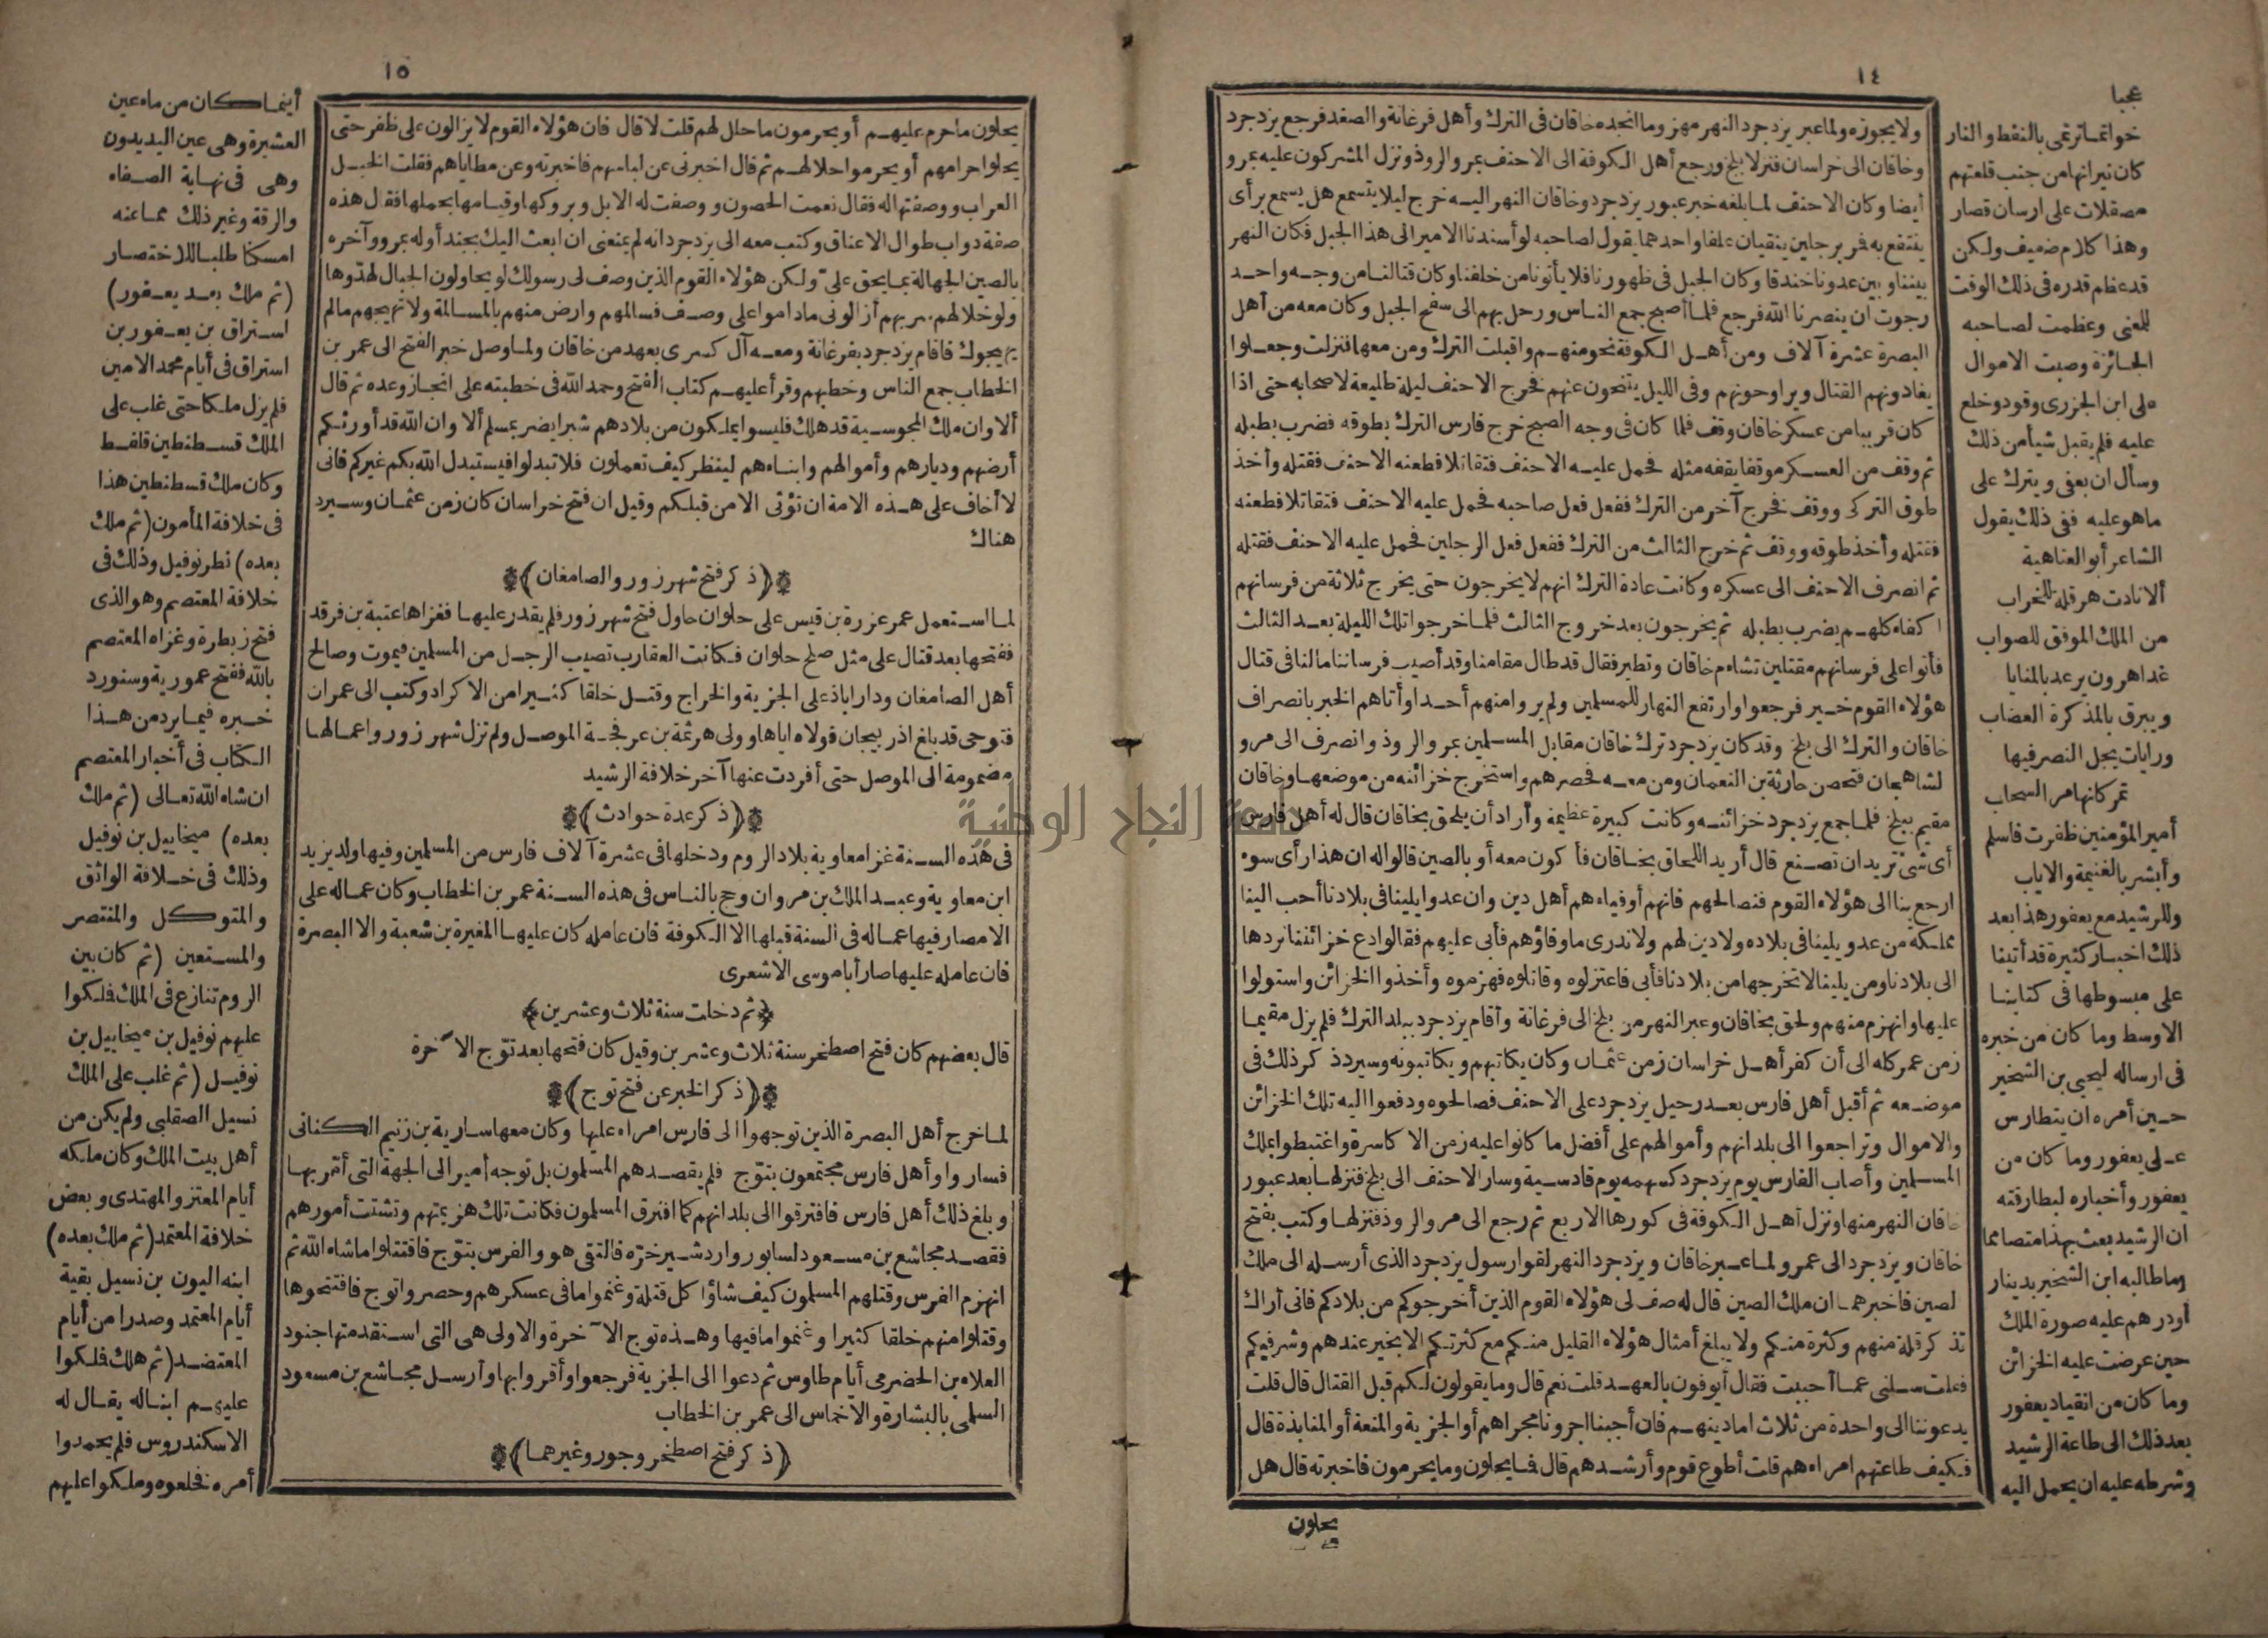 ١٤
ولا يجوزه ولما عبر يزدجرد النهر مهزوما أنجده خاقان فى الترك وأهل فرغانة والصغد فرجع يزدجرد
وخاقان الى خراسان فنزلا بلخ ورجع أهل الكوفة الى الاحنف بمرو الروذ ونزل المشركون عليه بمرو
أيضا وكان الاحنف لما بلغه خبر عبور يزدجرد وخاقان النهر اليه خرج ليلا يتسمع هل يسمع برأى
ينتفع به فمر برجلين ينقيان علفا واحدهما يقول لصاحبه لو أسندنا الامير الى هذا الجبل فكان النهر
بيننا وبين عدونا خندقا وكان الجبل فى ظهورنا فلا يأتونا من خلفنا وكان قتالنا من وجه واحد
رجوت ان ينصرنا الله فرجع فلما أصبح جمع الناس ورحل بهم الى سفح الجبل وكان معه من أهل
البصرة عشرة آلاف ومن أهل الكوفة نحو منهم وأقبلت الترك ومن معها فنزلت وجعلوا
يغادونهم القتال ويراوحونهم وفى الليل يتنحون عنهم فخرج الاحنف ليلة طليعة لاصحابه حتى اذا
كان قريبا من عسكر خاقان وقف فلما كان فى وجه الصبح خرج فارس الترك بطوقه فضرب بطبله
ثم وقف من العسكر موقفا يقفه مثله فحمل عليه الاحنف فتقاتلا فطعنه الاحنف فقتله وأخذ
طوق التركى ووقف فخرج آخر من الترك ففعل فعل صاحبه فحمل عليه الاحنف فتقاتلا فطعنه
فقتله وأخذ طوقه ووقف ثم خرج الثالث من الترك ففعل فعل الرجلين فحمل عليه الاحنف فقتله
ثم انصرف الاحنف الى عسكره وكانت عادة الترك انهم لا يخرجون حتى يخرج ثلاثة من فرسانهم
اكفاء كلهم يضرب بطبله ثم يخرجون بعد خروج الثالث فلما خرجوا تلك الليلة بعد الثالث
فأتوا على فرسانهم مقتلين تشاءم خاقان وتطير فقال قد طال مقامنا وقد أصيب فرساننا مالنا فى قتال
هؤلاء القوم خير فرجعوا وارتفع النهار للمسلمين ولم يروا منهم أحدا وأتاهم الخبر بانصراف
خاقان والترك الى بلخ وقد كان يزدجرد ترك خاقان مقابل المسلمين بمرو الروذ وانصرف الى مرو
لشاهجان فتحصن حارثة بن النعمان ومن معه فحصرهم واستخرج خزائنه من موضعها وخاقان
مقيم ببلخ فلما جمع يزدجرد خزائنه وكانت كبيرة عظيمة وأراد أن يلحق بخاقان قال له أهل فارس
أى شئ تريد ان تصنع قال أريد اللحاق بخاقان فأكون معه أو بالصين قالوا له ان هذا رأى سوء
ارجع بنا الى هؤلاء القوم فنصالحهم فانهم أوفياء هم أهل دين وان عدوا يلينا فى بلادنا أحب الينا
مملكه من عدو يلينا فى بلاده ولا دين لهم ولا ندرى ما وفاؤهم فأبى عليهم فقالوا دع خزائننا نردها
الى بلادنا ومن يلينا لا تخرجها من بلادنا فأبى فاعتزلوه وقاتلوه فهزموه وأخذوا الخزائن واستولوا
عليها وانهزم منهم ولحق بخاقان وعبر النهر من بلخ الى فرغانة وأقام يزدجرد ببلد الترك فلم يزل مقيما
زمن عمر كله الى أن كفر أهل خراسان زمن عثمان وكان يكاتبهم ويكاتبونه وسيرد ذكر ذلك فى
موضعه ثم أقبل أهل فارس بعد رحيل يزدجرد على الاحنف فصالحوه ودفعوا اليه تلك الخزائن
والاموال وتراجعوا الى بلدانهم وأموالهم على أفضل ما كانوا عليه زمن الاكاسرة واغتبطوا بملك
المسلمين وأصاب الفارس يوم يزدجرد كسهمه يوم قادسية وسار الاحنف الى بلخ فنزلها بعد عبور
خاقان النهر منها ونزل أهل الكوفة فى كورها الاربع ثم رجع الى مرو الروذ فنزلها وكتب بفتح
خاقان ويزدجرد الى عمر ولما عبر خاقان ويزدجرد النهر لقوا رسول يزدجرد الذى أرسله الى ملك
لصين فاخبرهما ان ملك الصين قال له صف لى هؤلاء القوم الذين أخرجوكم من بلادكم فانى أراك
تذكر قلة منهم وكثرة منكم ولا يبلغ أمثال هؤلاء القليل منكم مع كثرتكم الا بخير عندهم وشر فيكم
فقلت سلنى عما أحببت فقال أيوفون بالعهد قلت نعم قال وما يقولون لكم قبل القتال قال قلت
يدعوننا الى واحدة من ثلاث اما دينهم فان أجبنا اجرونا مجراهم أو الجزية والمنعة أو المنابذة قال
فكيف طاعتهم امراءهم قلت أطوع قوم وأرشدهم قال فما يحلون وما يحرمون فاخبرته قال هل
يحلون
عجبا
خواتما ترتمى بالنفط والنار
كان نيرانها من جنب قلعتهم
مصقلات على ارسان قصار
وهذا كلام ضعيف ولكن
قد عظم قدره فى ذلك الوقت
للمغنى وعظمت لصاحبه
الجائزة وصبت الاموال
على ابن الجزرى وقود وخلع
عليه فلم يقبل شيأ من ذلك
وسأل ان يعفى ويترك على
ما هو عليه ففى ذلك يقول
الشاعر أبو العتاهية
ألا نادت هرقلة للخراب
من الملك الموفق للصواب
غدا هرون يرعد بالمنايا
ويبرق بالمذكرة العضاب
ورايات يحل النصر فيها
تمر كانها مر السحاب
أمير المؤمنين ظفرت فاسلم
وأبشر بالغنيمة والاياب
وللرشيد مع يعفور هذا بعد
ذلك اخبار كثيرة قد أتينا
على مبسوطها فى كتابنا
الاوسط وما كان من خبره
فى ارساله ليحيى بن الشخير
حين أمره ان يتطارس
على يعفور وما كان من
يعفور وأخباره لبطارقته
ان الرشيد بعث بهذا متصامما
وما طالبه ابن الشخير بدينار
أو درهم عليه صورة الملك
حين عرضت عليه الخزائن
وما كان من انقياد يعفور
بعد ذلك الى طاعة الرشيد
وشرطه عليه ان يحمل اليه
١٥
يحلون ما حرم عليهم أو يحرمون ما حلل لهم قلت لا قال فان هؤلاء القوم لا يزالون على ظفر حتى
يحلوا حرامهم أو يحرموا حلالهم ثم قال اخبرنى عن لباسهم فاخبرته وعن مطاياهم فقلت الخيل
العراب ووصفتها له فقال نعمت الحصون ووصفت له الابل وبروكها وقيامها بحملها فقال هذه
صفة دواب طوال الاعناق وكتب معه الى يزدجرد انه لم يمنعنى ان ابعث اليك بجند أوله بمرو وآخره
بالصين الجهالة بما يحق على ولكن هؤلاء القوم الذين وصف لى رسولك لو يحاولون الجبال لهدوها
ولو خلا لهم سربهم أزالونى ماداموا على وصف فسالمهم وارض منهم بالمسالمة ولا تهيجهم مالم
يهيجوك فاقام يزدجرد بفرغانة ومعه آل كسرى بعهد من خاقان ولما وصل خبر الفتح الى عمر بن
الخطاب جمع الناس وخطبهم وقرأ عليهم كتاب الفتح وحمد الله فى خطبته على انجاز وعده ثم قال
ألا وان ملك المجوسية قد هلك فليسوا يملكون من بلادهم شبرا يضر بمسلم ألا وان الله قد أورثكم
أرضهم وديارهم وأموالهم وابناءهم لينظر كيف تعملون فلا تبدلوا فيستبدل الله بكم غيركم فانى
لا أخاف على هذه الامة ان تؤتى الا من قبلكم وقيل ان فتح خراسان كان زمن عثمان وسيرد
هناك
﴿ذكر فتح شهرزور والصامغان﴾
لما استعمل عمر عزرة بن قيس على حلوان حاول فتح شهرزور فلم يقدر عليها فغزاها عتبة بن فرقد
ففتحها بعد قتال على مثل صلح حلوان فكانت العقارب تصيب الرجل من المسلمين فيموت وصالح
أهل الصامغان وداراباذ على الجزية والخراج وقتل خلقا كثيرا من الاكراد وكتب الى عمر ان
فتوحى قد بلغ اذربيجان فولاه اياها وولى هرثمة بن عرفجة الموصل ولم تزل شهرزور واعمالها
مضمومة الى الموصل حتى أفردت عنها آخر خلافة الرشيد
﴿ذكر عدة حوادث﴾
فى هذه السنة غزا معاوية بلاد الروم ودخلها فى عشرة آلاف فارس من المسلمين وفيها ولد يزيد
ابن معاوية وعبد الملك بن مروان وحج بالناس فى هذه السنة عمر بن الخطاب وكان عماله على
الامصار فيها عماله فى السنة قبلها الا الكوفة فان عامله كان عليها المغيرة بن شعبة والا البصرة
فان عامله عليها صار أبا موسى الاشعرى
﴿ثم دخلت سنة ثلاث وعشرين﴾
قال بعضهم كان فتح اصطخر سنة ثلاث وعشرين وقيل كان فتحها بعد توج الآخرة
﴿ذكر الخبر عن فتح توج﴾
لما خرج أهل البصرة الذين توجهوا الى فارس امراء عليها وكان معها سارية بن زنيم الكنانى
فساروا وأهل فارس مجتمعون بتوج فلم يقصدهم المسلمون بل توجه أمير الى الجهة التى أمر بها
وبلغ ذلك أهل فارس فافترقوا الى بلدانهم كما افترق المسلمون فكانت تلك هزيمتهم وتشتت أمورهم
فقصد مجاشع بن مسعود لسابور واردشير خره فالتقى هو والفرس بتوج فاقتتلوا ماشاء الله ثم
انهزم الفرس وقتلهم المسلمون كيف شاؤا كل قتلة وغنموا مافى عسكرهم وحصروا توج فافتتحوها
وقتلوا منهم خلقا كثيرا وغنموا مافيها وهذه توج الآخرة والاولى هى التى استنقذ متها جنود
العلاء بن الحضرمى أيام طاوس ثم دعوا الى الجزية فرجعوا وأقروا بها وأرسل مجاشع بن مسعود
السلمى بالبشارة والاخماس الى عمر بن الخطاب
﴿ذكر فتح اصطخر وجور وغيرهما﴾
أينما كان من ماء عين
العشيرة وهى عين البديدون
وهى فى نهاية الصفاء
والرقة وغير ذلك مما عنه
امسكنا طلبا للاختصار
(ثم ملك بعد يعفور)
استراق بن يعفور بن
استراق فى أيام محمد الامين
فلم يزل ملكا حتى غلب على
الملك قسطنطين قلفط
وكان ملك قسطنطين هذا
فى خلافة المأمون (ثم ملك
بعده) نطر نوفيل وذلك فى
خلافة المعتصم وهو الذى
فتح زبطرة وغزاه المعتصم
بالله ففتح عمورية وسنورد
خبره فيما يرد من هذا
الكتاب فى أخبار المعتصم
ان شاء الله تعالى (ثم ملك
بعده) ميخاييل بن نوفيل
وذلك فى خلافة الواثق
والمتوكل والمنتصر
والمستعين (ثم كان بين
الروم تنازع فى الملك فملكوا
عليهم نوفيل بن ميخاييل بن
نوفيل (ثم غلب على الملك
نسيل الصقلبى ولم يكن من
أهل بيت الملك وكان ملكه
أيام المعتز والمهتدى وبعض
خلافة المعتمد (ثم ملك بعده)
ابنه اليون بن نسيل بقية
أيام المعتمد وصدرا من أيام
المعتضد (ثم هلك فملكوا
عليهم ابنا له يقال له
الاسكندروس فلم يحمدوا
أمره فخلعوه وملكوا عليهم
جامعة النجاح الوطنية